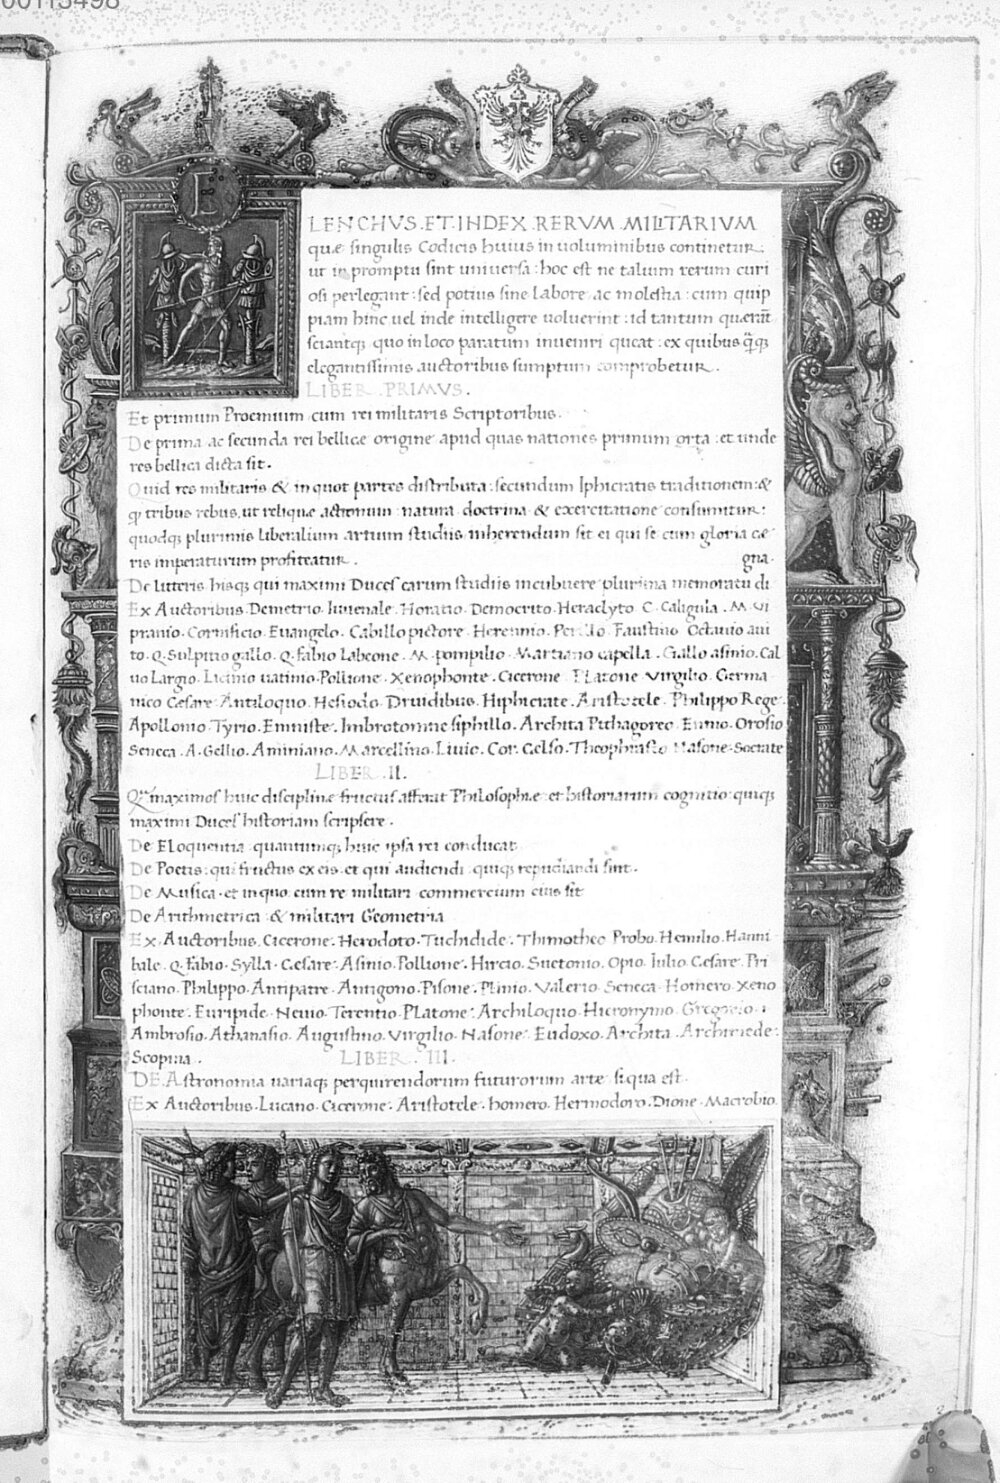 00113498
ELENCHVS.ET.INDEX.RERVM.MILITARIUM
quæ singulis Codicis huius in uoluminibus continetur.
ut in promptu sint uniuersa: hoc est ne talium rerum curi
osi perlegant: sed potius sine labore ac molestia: cum quip
piam hinc uel inde intelligere uoluerint: id tantum quærāt
sciantq; quo in loco paratum inueniri queat: ex quibus q̃q;
elegantissimis auctoribus sumptum comprobetur.
LIBER PRIMVS.
Et primum Procmium cum rei militaris Scriptoribus.
De prima ac secunda rei bellicæ origine apud quas nationes primum orta: et unde
res bellica dicta sit.
Quid res militaris & in quot partes distributa: secundum Iphicratis traditionem: &
q̃ tribus rebus, ut reliquæ actionum natura doctrina & exercitatione consumitur:
quodq; plurimis liberalium artium studiis inherendum sit ei qui se cum gloria cæ
ris imperaturum profiteatur.
gna.
De litteris hisq; qui maximi Duces earum studiis incubuere plurima memoratu di
Ex Auctoribus. Demetrio. Iuuenale. Horatio. Democrito. Heraclyto. C. Caligula. M. Vi
pranio. Cornificio. Euangelo. Cabillo pictore. Herennio. Faustino Octauio aui
to. Q. Sulpitio gallo. Q. fabio Labeone. M. pompilio. Martiano capella. Gallo asinio. Cal
uo Largio. Licinio uatinio. Pollione. Xenophonte. Cicerone. Platone Virgilio. Germa
nico Cæsare. Antiloquo. Hesiodo. Druidibus. Hiphicrate. Aristotele. Philippo Rege
Apollonio. Tyrio. Enniste. Imbrotomne siphillo. Archita Pithagoreo. Ennio. Orosio
Seneca. A. Gellio. Aminiano. Marcellino. Liuio. Cor. Celso. Theophrasto Nasone. Socrate
LIBER .II.
Qm̃ maximos huic disciplinæ fructus afferat Philosophiæ et historiarum cognitio: quiq;
maximi Duces historiam scripsere.
De Eloquentia quantumq; huic ipsa rei conducat
De Poetis: qui fructus ex eis. et qui audiendi quiq; repudiandi sint.
De Musica. et in quo cum re militari commercium eius sit
De Arithmetrica & militari Geometria
Ex Auctoribus. Cicerone. Herodoto. Tuchidide. Thimotheo Probo. Hemilio. Hanni
bale. Q. Fabio. Sylla. Cesare. Asinio. Pollione. Hircio. Suetonio. Opio. Iulio Cesare. Pri
sciano. Philippo. Antipatre. Antigono. Pisone. Plinio. Valerio. Seneca. Homero. Xeno
phonte. Euripide. Neuio. Terentio. Platone. Archiloquo. Hieronymo. Gregorio.
Ambrosio. Athanasio. Augustino. Virgilio. Nasone. Eudoxo. Archita. Archimede.
Scopina.
LIBER. III.
DE Astronomia uariaq; perquirendorum futurorum arte si qua est.
Ex Auctoribus. Lucano. Cicerone. Aristotele. homero. Hermodoro. Dione. Macrobio.